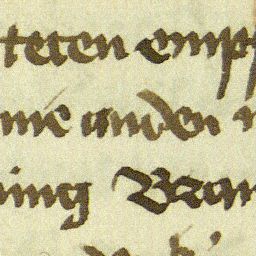 teten emp
me unden
ing Bran